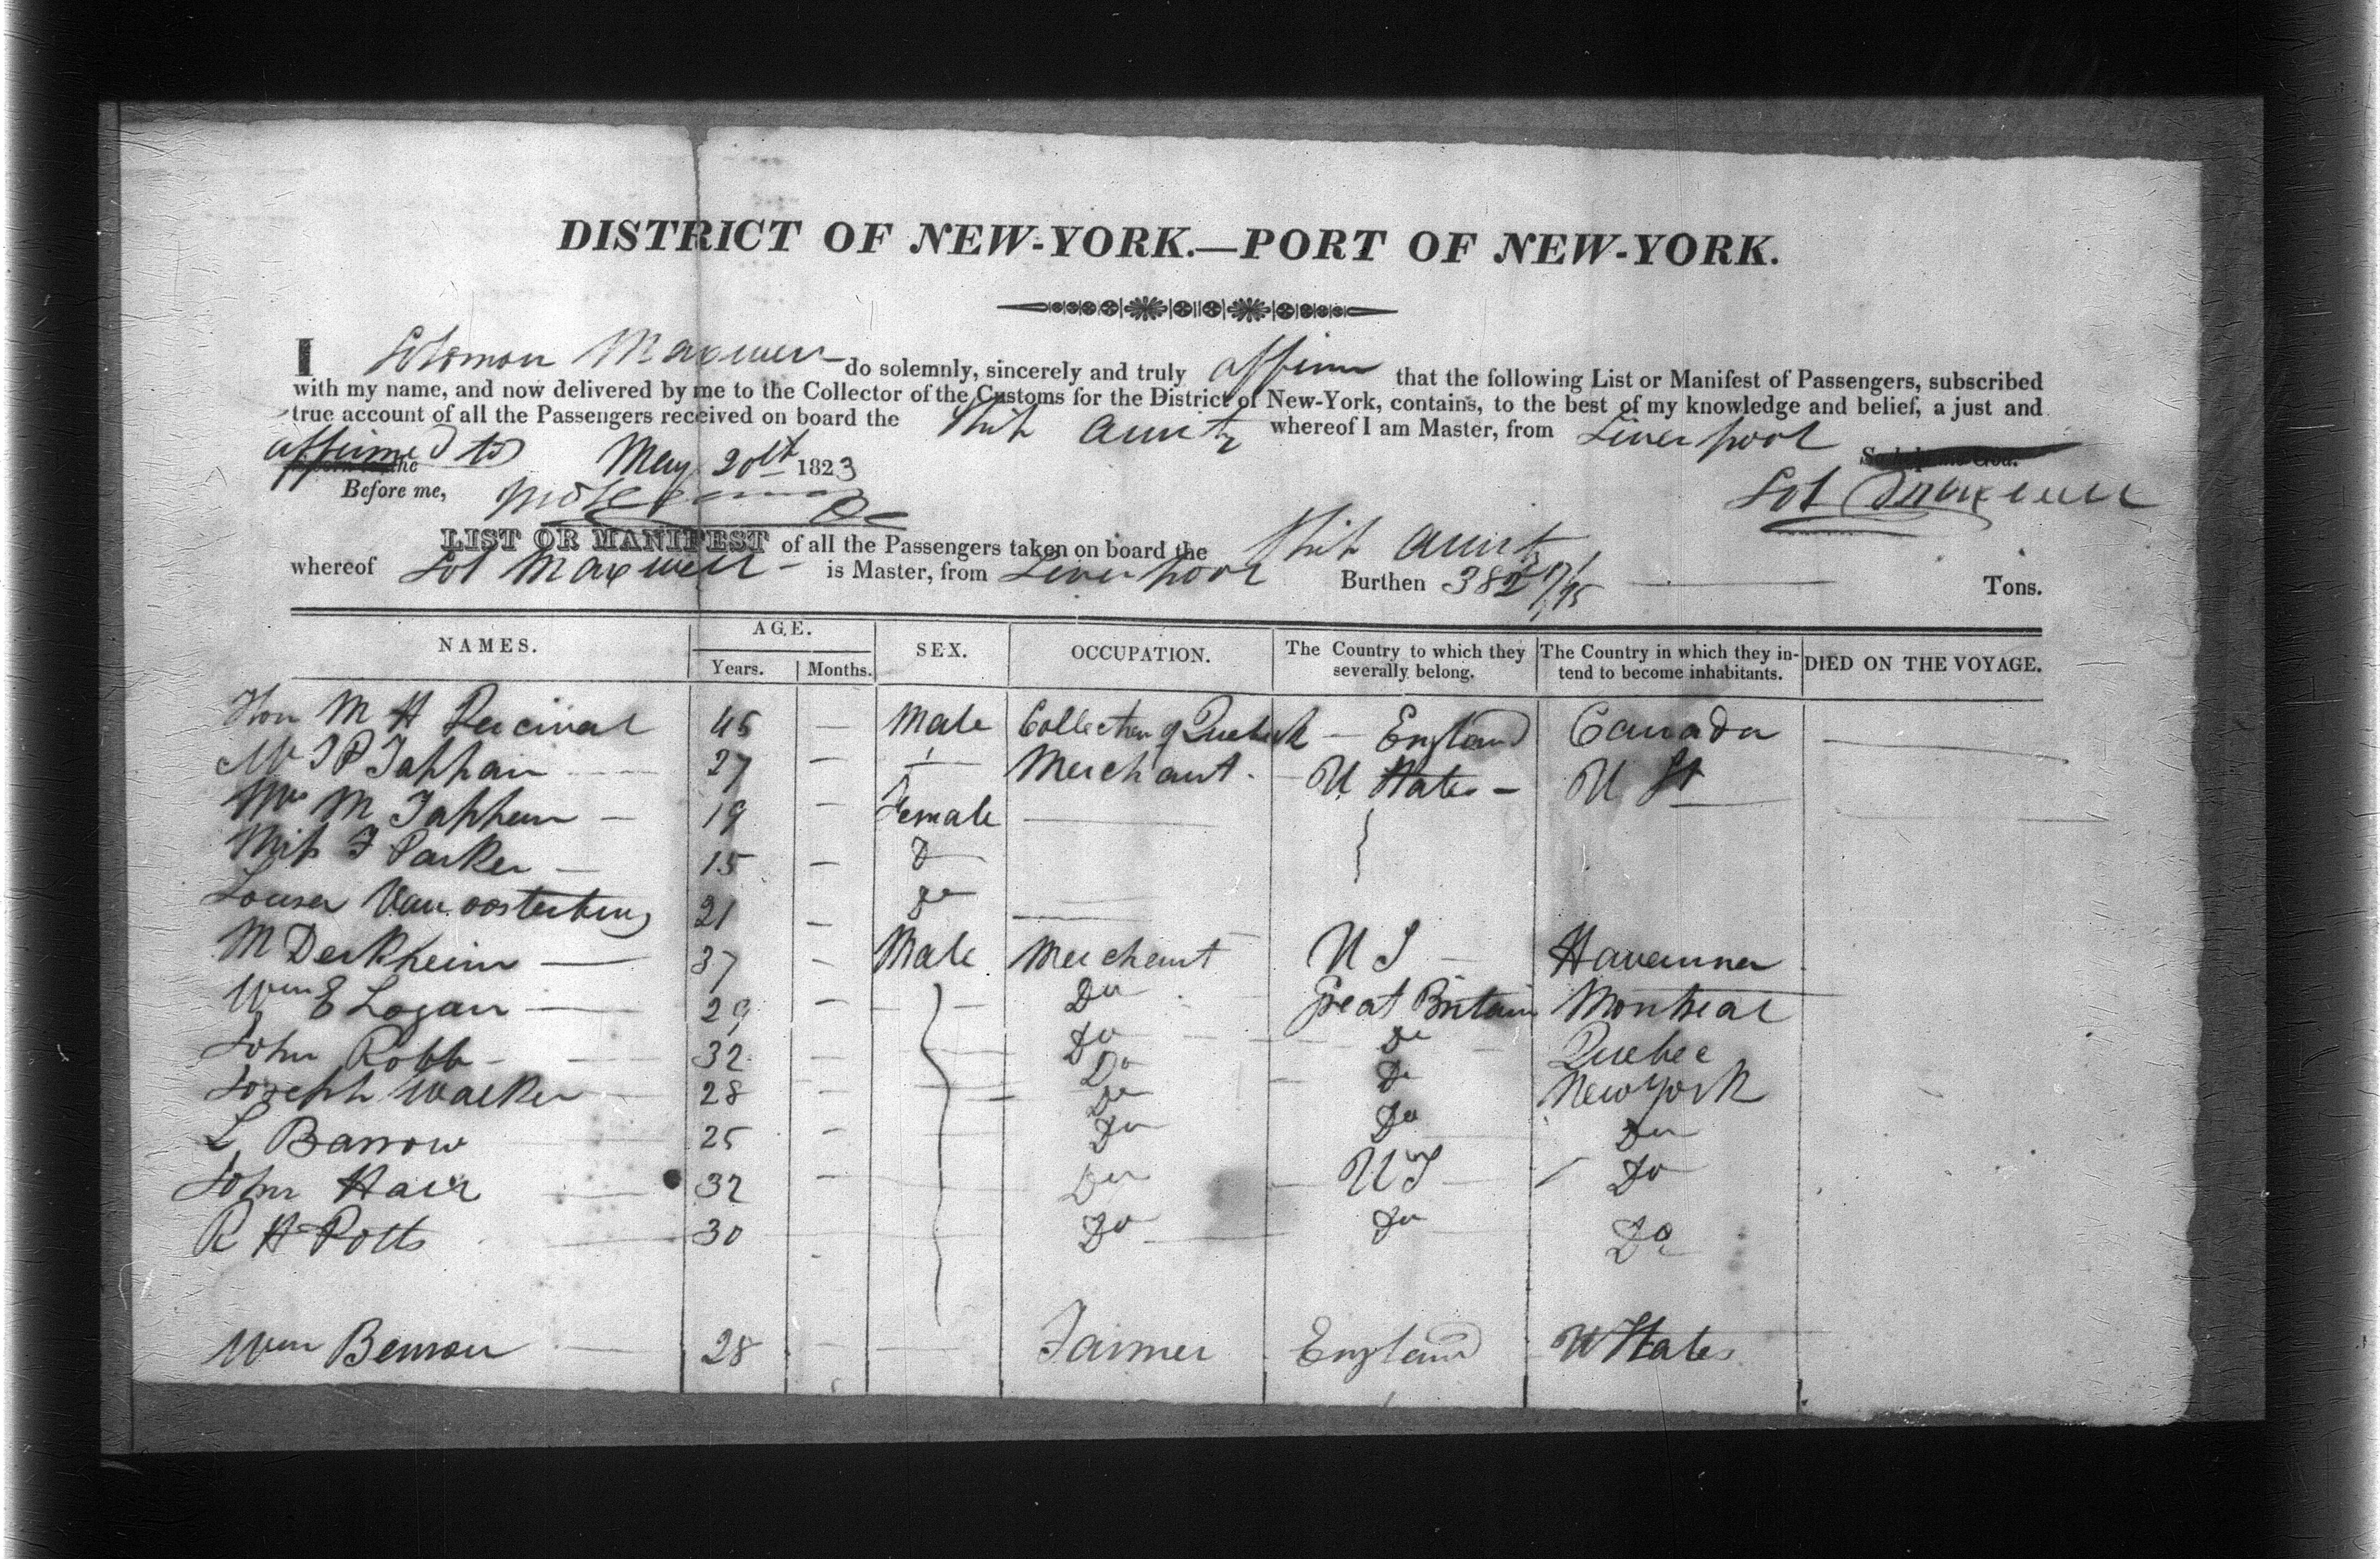 DISTRICT OF NEW-YORK.—PORT OF NEW-YORK.
I Solomon Maxwell do solemnly, sincerely and truly affirm that the following List or Manifest of Passengers, subscribed
with my name, and now delivered by me to the Collector of the Customs for the District of New-York, contains, to the best of my knowledge and belief, a just and
true account of all the Passengers received on board the Ship Amity whereof I am Master, from Liverpool
affirmed to May 20th 1823
Before me,
Sol Maxwell
LIST OR MANIFEST of all the Passengers taken on board the Ship Amity
whereof Sol Maxwell is Master, from Liverpool Burthen 382 /95 Tons.
NAMES. AGE. Years. Months. SEX. OCCUPATION. The Country to which they severally belong. The Country in which they intend to become inhabitants. DIED ON THE VOYAGE.
Hon M H Percival 45 — Male Collector of Quebeck — England Canada
Mr J P Tappan 27 — Merchant. U States — U St
Mrs M Tappan — 19 — Female
Miss F Parker — 15 — Do
Louisa Van 21 — Do
M Derkheim — 37 — Male Merchant U S — Havanna
Wm E Logan — 29 — Do Great Britain Montreal
John Robb — 32 — Do Do Quebec
Joseph Walker 28 — Do Do New York
L Barrow 25 — Do Do Do
John Hair 32 — Do U S Do
R H Potts 30 - Do Do Do
Wm Benson — 28 — Farmer England U States